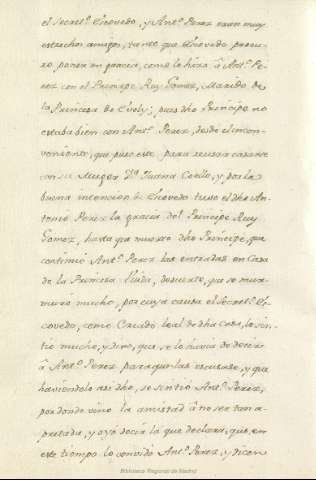 el Secret.º Escovedo, y Ant.º Perez eran muy
estrechos amigos, tanto que Escovedo procu-
ro poner en gracia, como lo hizo à Ant.º Pe-
rez con el Principe Ruy Gomez, Marido de
la Princesa de Evoly; pues dho Principe no
estaba bien con Ant.º Perez, desde el incon-
veniente, que puso este para recusar casarse
con su Muger D.ª Juana Coello, y por la
buena intencion de Escovedo tuvo el dho An-
tonio Perez la gracia del Principe Ruy
Gomez, hasta que muerto dho Principe, que
continuó Ant.º Perez las entradas en Casa
de la Princesa Viuda, desuerte, que se mur-
muró mucho, por cuya causa el Secret.º Es-
covedo, como Criado leal de dha Casa, lo sin-
tio mucho, y dixo, que se lo havia de decir
à Ant.º Perez para que las escusase, y que
haviendolo asi dho, se sintió Ant.º Perez,
por donde vino la amistad à no ser tan a-
pretada, y oyó decir la que declara, que en
este tiempo lo convidó Ant.º Perez, y dicen
Biblioteca Regional de Madrid